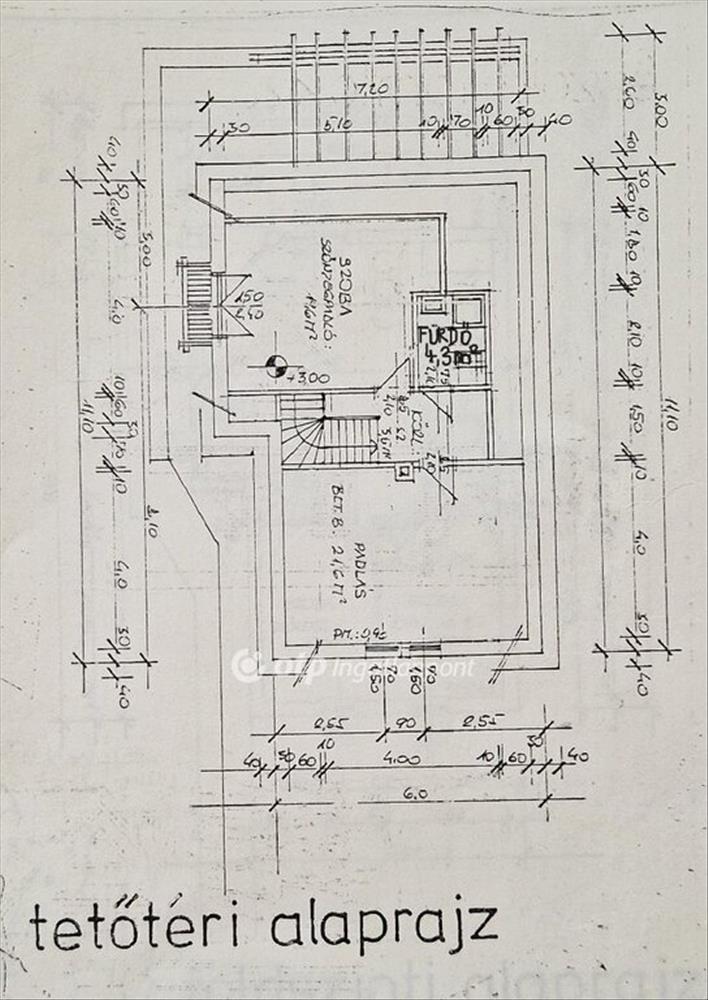 7,20
30 5,10 10 70 10 60 30 40
2,60 3,00
40
30
60 10
1,80
10
2,10
10
1,50
10
4,0
30
40
11,10
40
30
60
10
3,00
4,0
10
60
30
10
11,10
2,10
4,0
30
40
SZOBA
SZŐNYEGPADLÓ:
FÜRDŐ
4,3 m²
150
2,40
+3,00
75
2,10
KÖZL.
PADLÁS
BLT.B. 21,6 M²
PM.: 0,95
otp Ingatlanpont
2,55 90 2,55
40 30 60 10 4,00 10 60 30 40
6,0
tetőtéri alaprajz